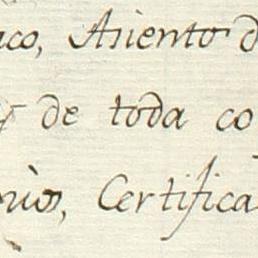 aco, Asiento d
de toda co
orios, Certifica